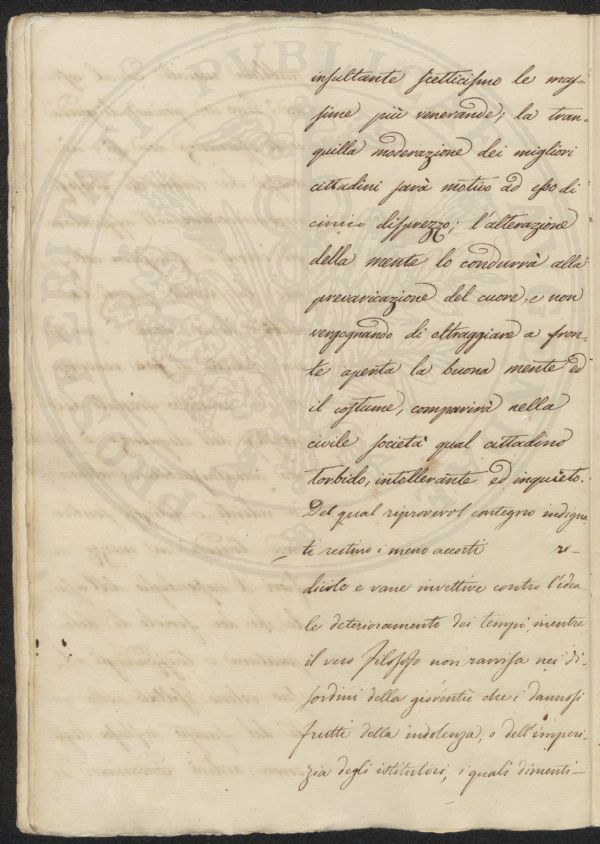 insultante scetticismo le mas-
sime più venerande; la tran-
quilla moderazione dei migliori
cittadini sarà motivo ad esso di
cinico disprezzo; l'alterazione
della mente lo condurrà alla
prevaricazione del cuore, e non
vergognando di oltraggiare a fron-
te aperta la buona mente ed
il costume, comparirà nella
civile società qual cittadino
torbido, intollerante ed inquieto.
Del qual riprovevol contegno indigna-
ti restino i meno accorti ri-
dicole e vane invettive contro l'idea-
le deterioramento dei tempi, mentre
il vero filosofo non ravvisa nei di-
sordini della gioventù che i dannosi
frutti della indolenza, o dell'imperi-
zia degli istitutori, i quali dimenti-